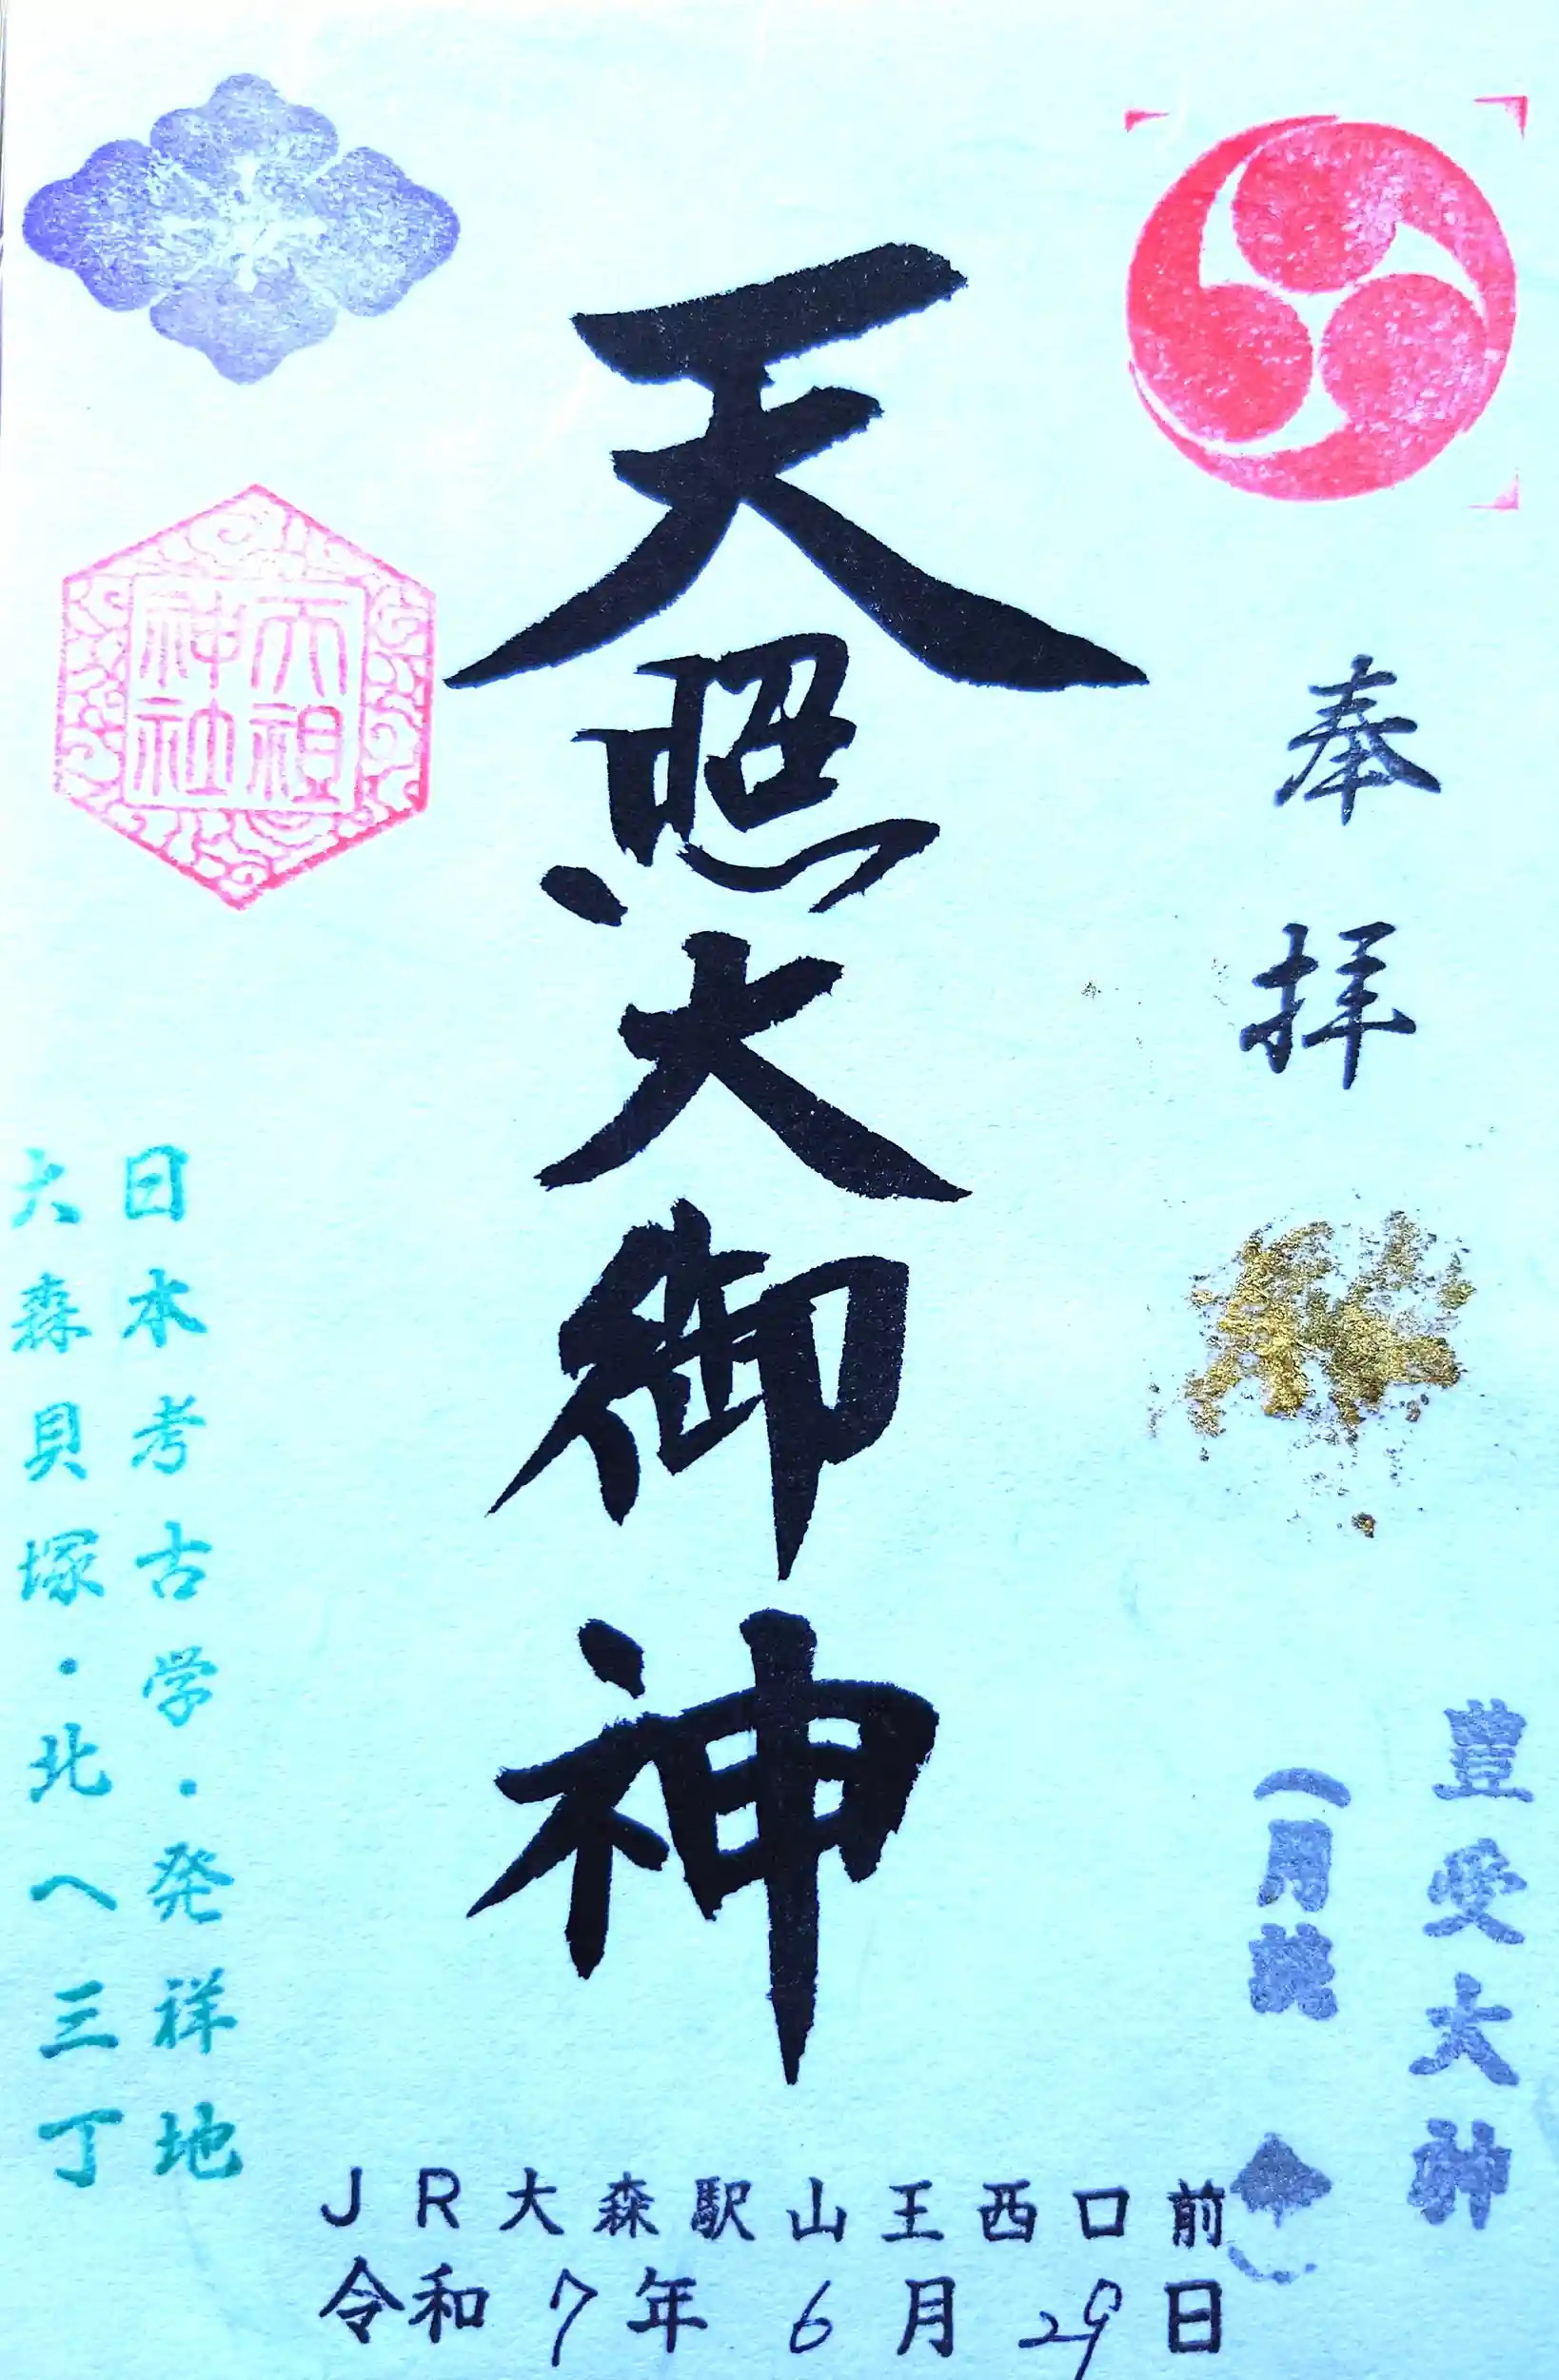 奉拝
豊受大神
天照大御神
天祖神社
日本考古学・発祥地
大森貝塚・北へ三丁
JR大森駅山王西口前
令和7年6月29日